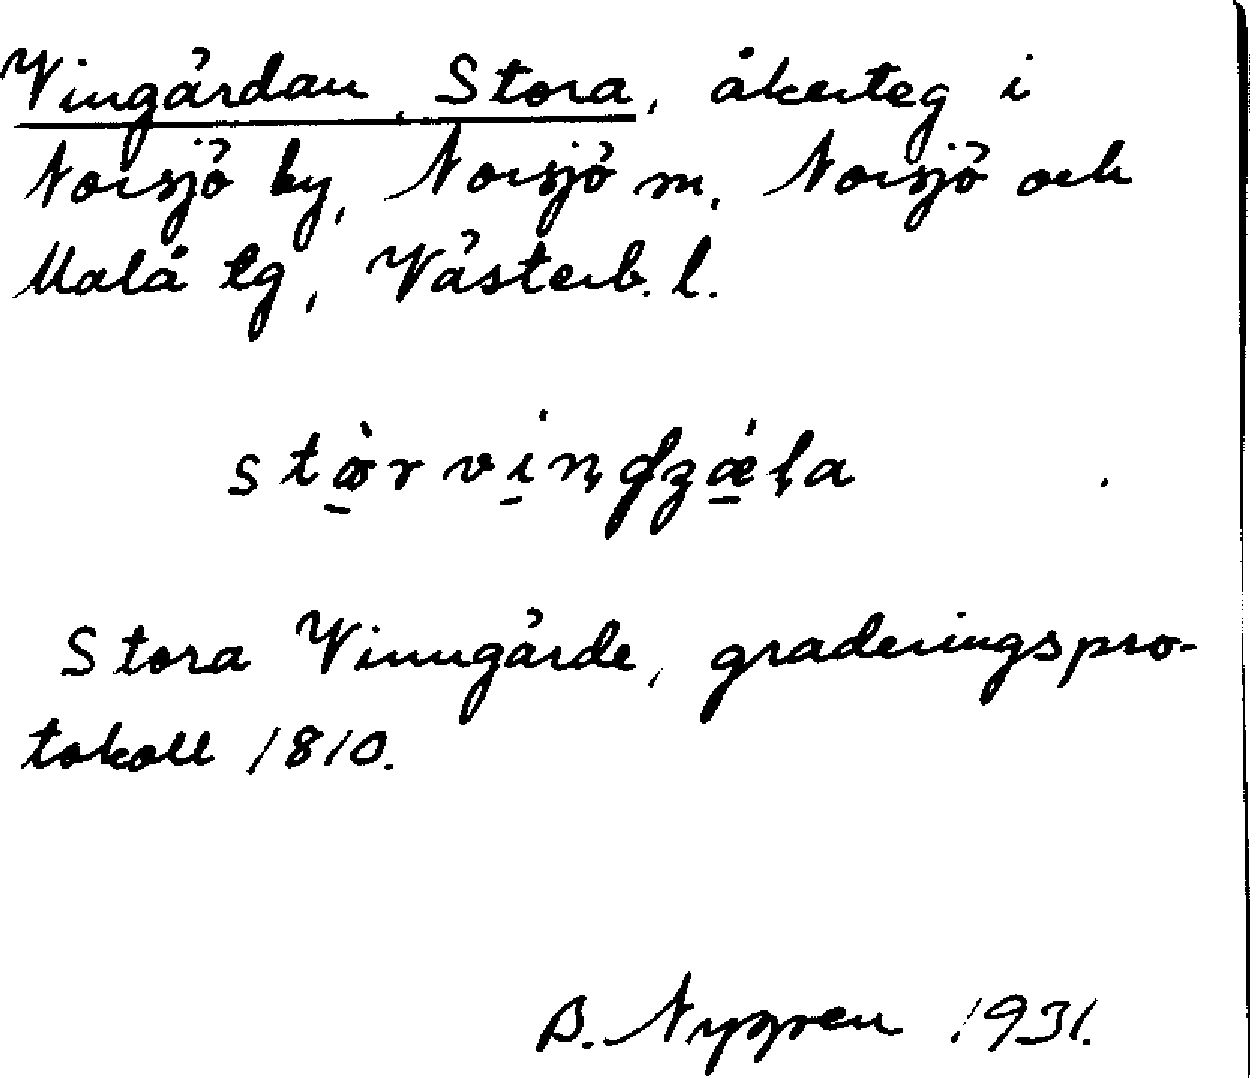 Vingärdan, Stora, åkerteg i
Norsjö by, Norsjö sn, Norsjö och
Malå tg, Västerb. l.
Stora Vinngärde, graderingspro-
tokoll 1810.
B. Nygren 1931.